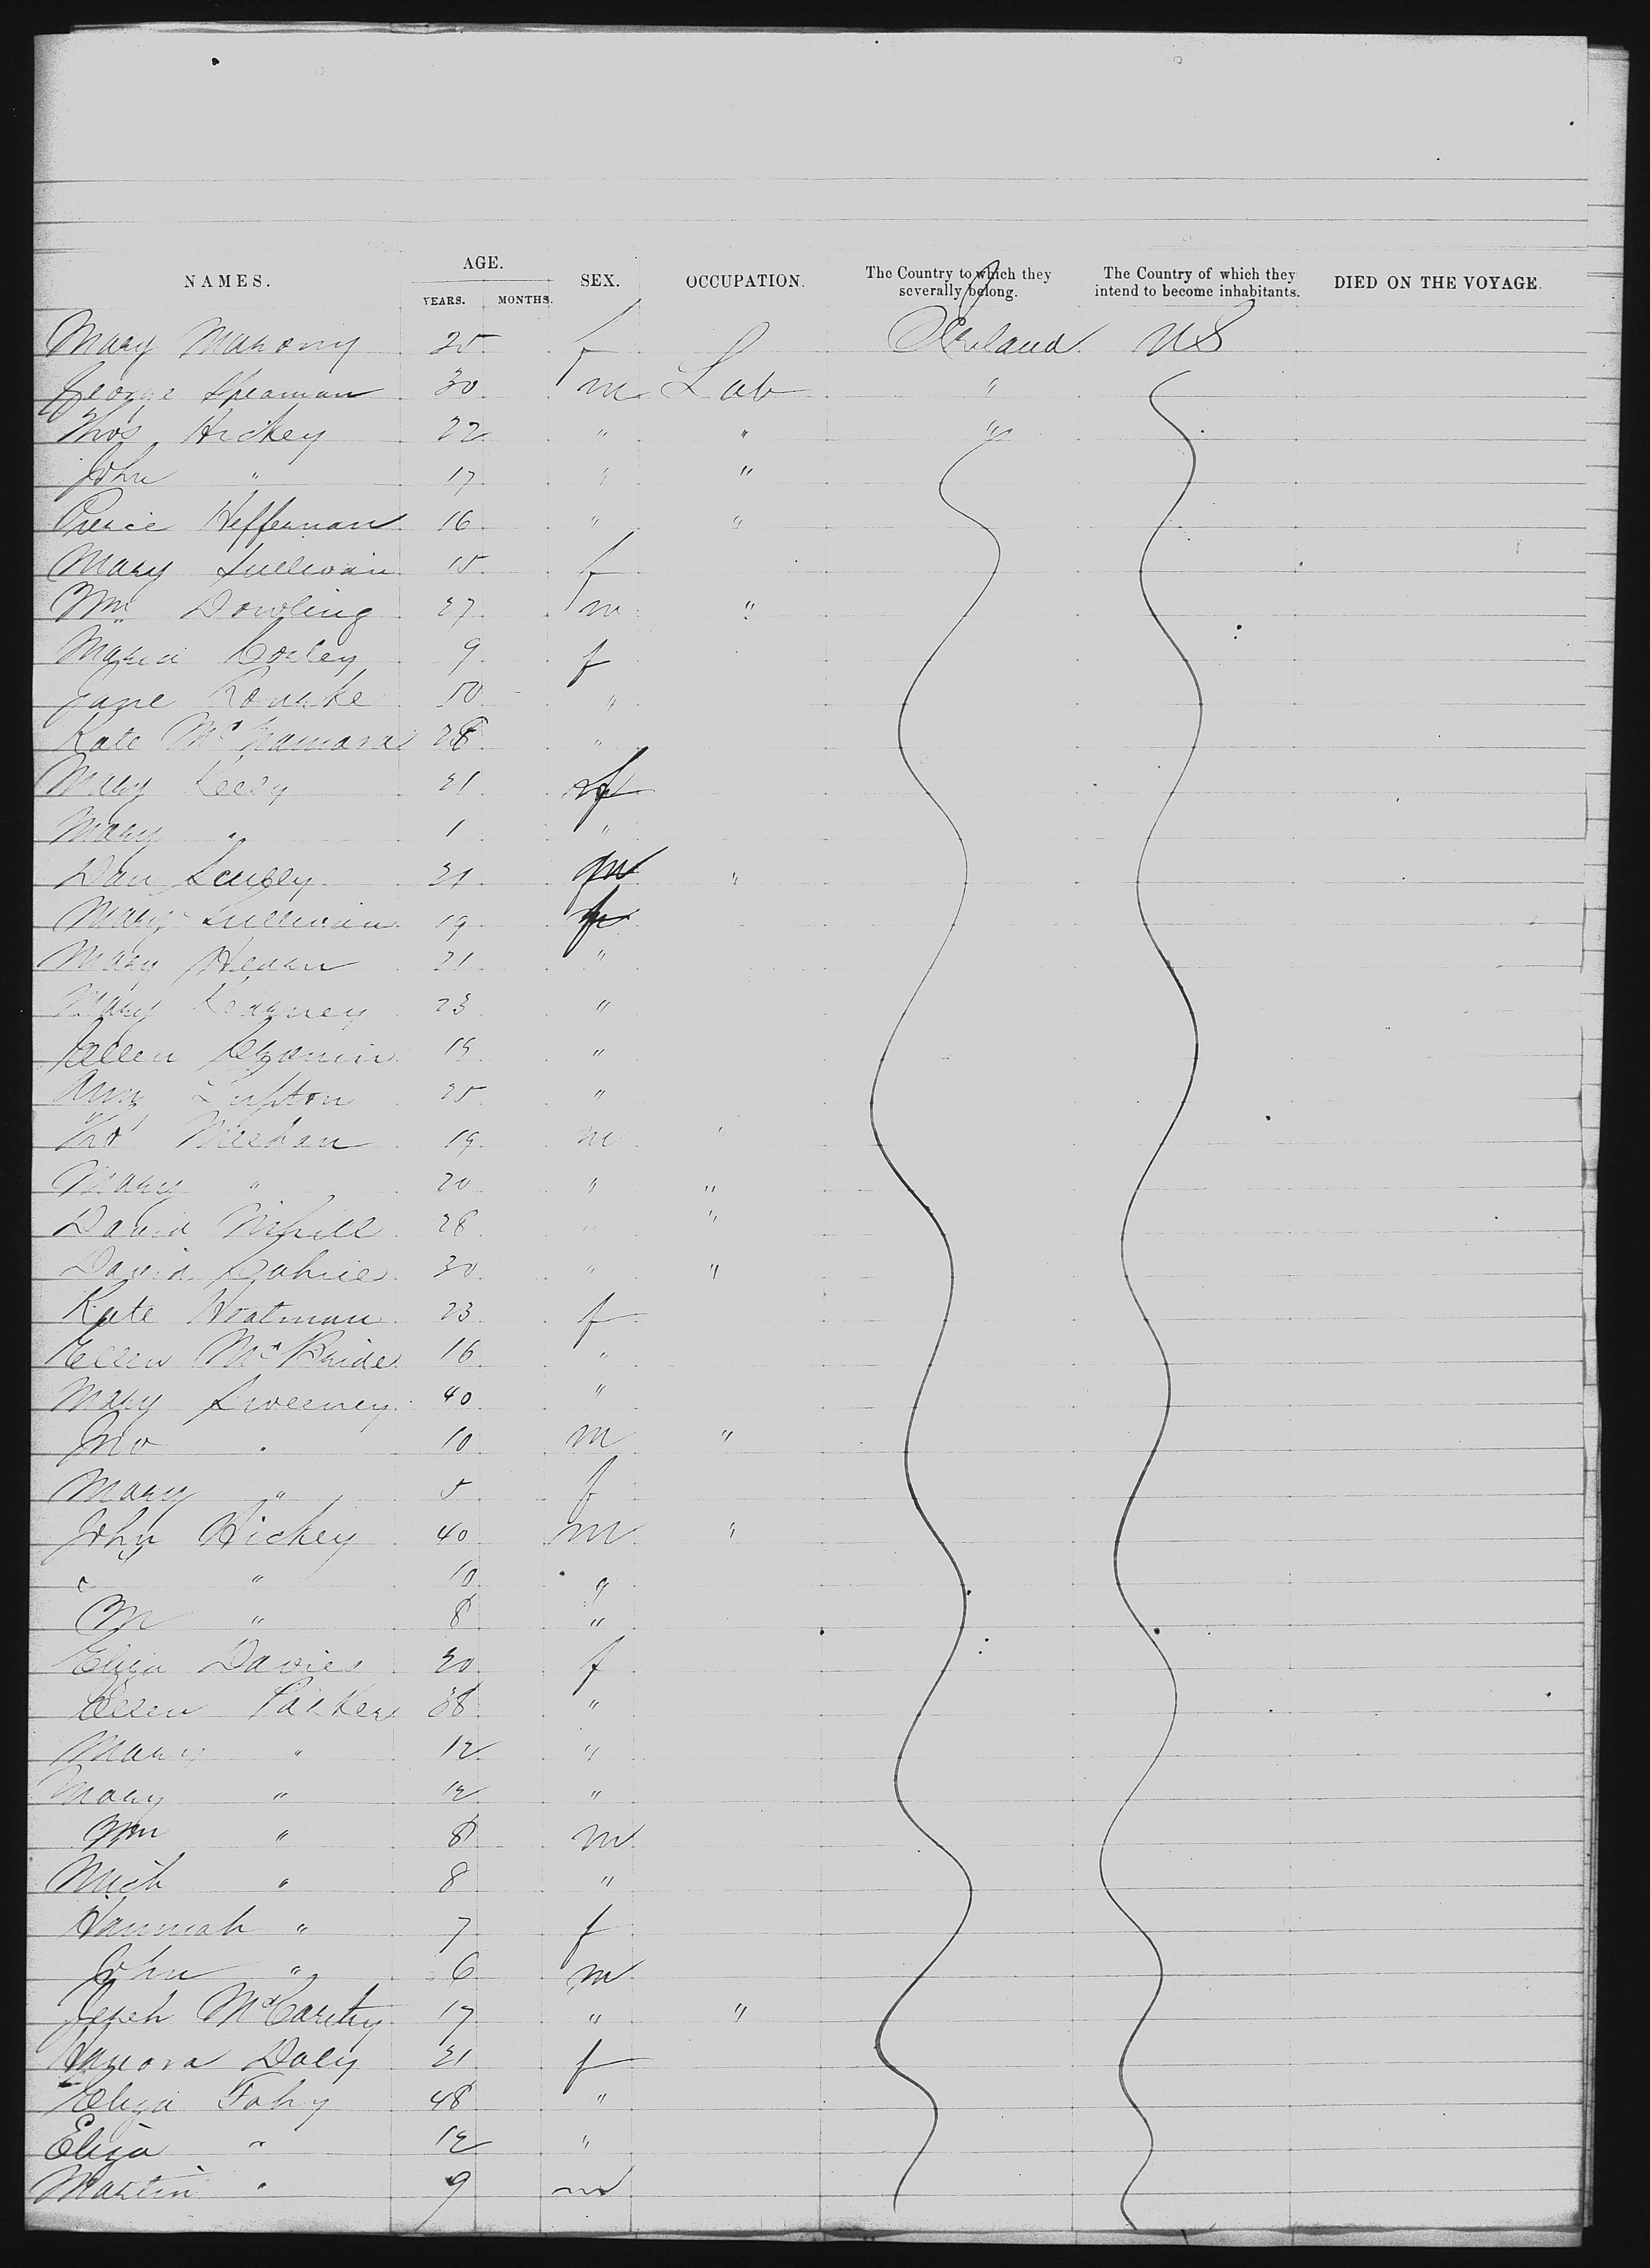 NAMES. AGE. SEX. OCCUPATION. The Country to which they severally belong. The Country of which they intend to become inhabitants. DIED ON THE VOYAGE.
YEARS. MONTHS.
Mary Mahony 25 f Ireland U S
George Spearman 30 m Lab "
Thos Hickey 22 " " "
John " 17 " "
Pierce Heffernan 16 " "
Mary Sullivan 15 f
Wm Dowling 27 m "
Maria Corley 9 f
Jane Rourke 50 "
Kate McNamara 28 "
Mary Kelly 21 f
Mary " 1 "
Dan 21 m "
Mary Sullivan 19 f
Mary Hearn 21 "
Mary Kearney 23 "
Ellen 19 "
Ann Lupton 25 "
Meehan 19 m "
Mary " 20 " "
David Nihill 28 " "
David 30 " "
Kate 23 f
Ellen McBride 16 "
Mary Sweeney 40 "
Jno " 10 m "
Mary " 5 f
John Hickey 40 m "
" 10 "
" 8 "
Eliza Davies 30 f
Ellen Parker 38 "
Mary " 12 "
Mary " 12 "
Wm " 8 m
Mich " 8 "
Hannah " 7 f
John " 6 m
McCarthy 17 " "
Honora Daly 21 f
Eliza Fahy 48 "
Eliza " 12 "
Martin " 9 m